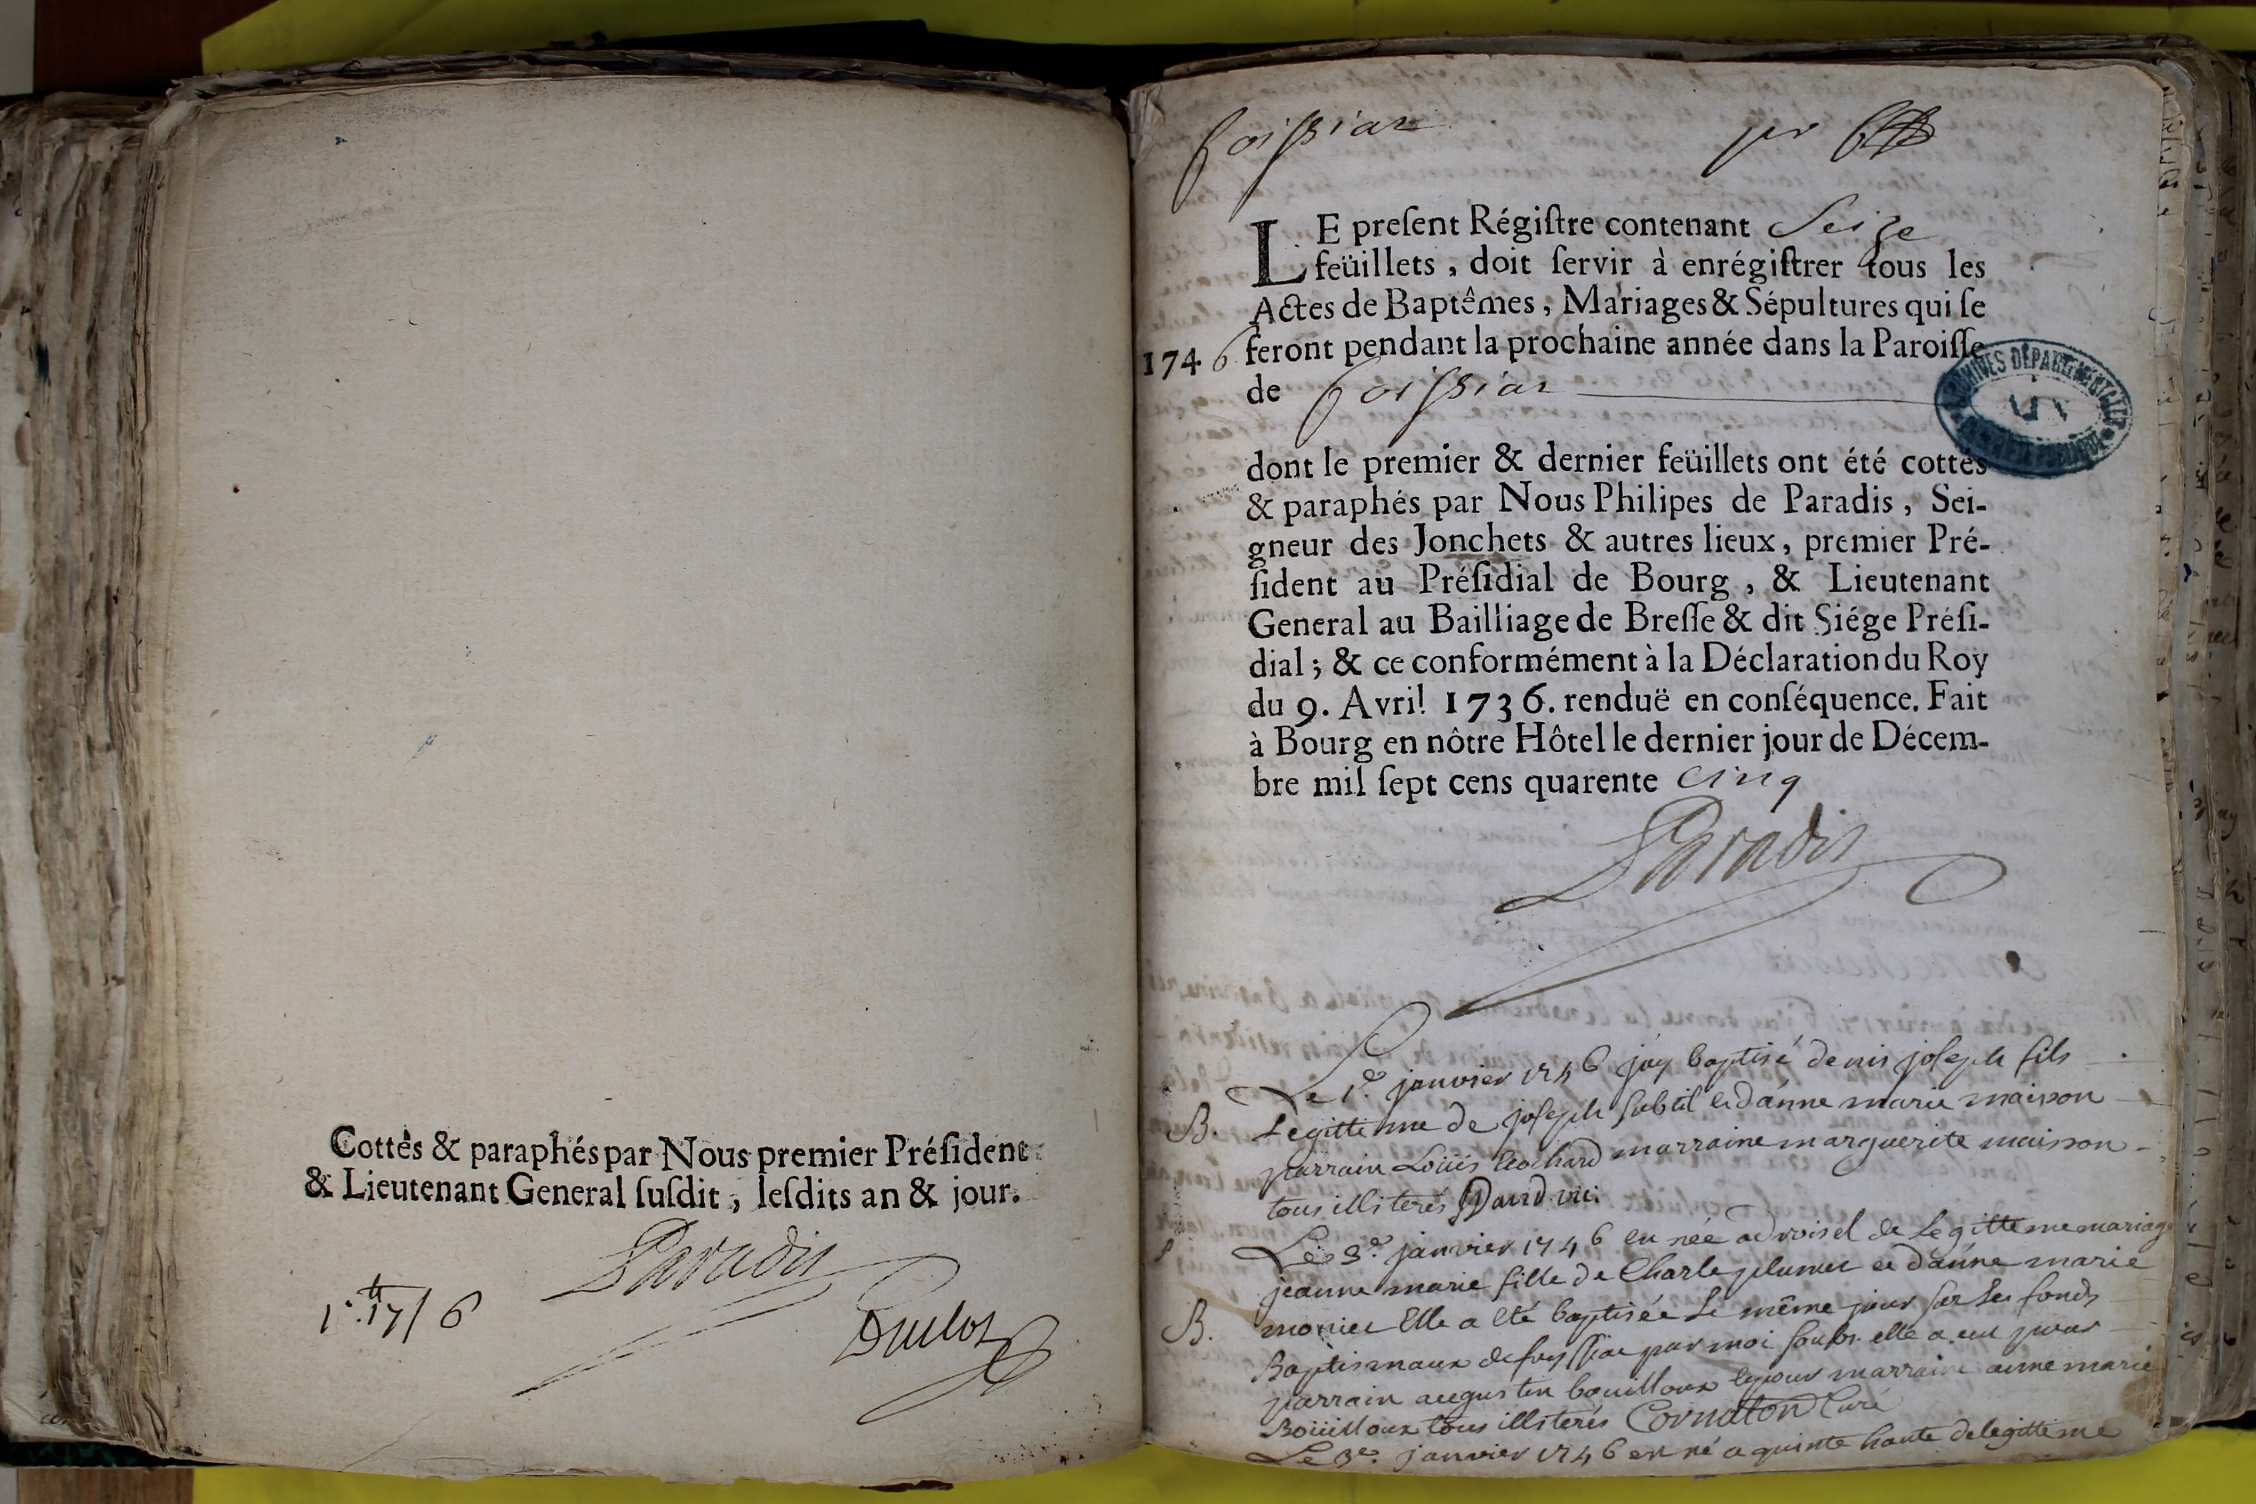 Cottés & paraphés par Nous premier Président
& Lieutenant General ſuſdit, leſdits an & jour.
Paradis
Duclos
foissiat
LE preſent Régiſtre contenant Seize
feüillets, doit ſervir à enrégiſtrer tous les
Actes de Baptêmes, Mariages & Sépultures qui ſe
1746 feront pendant la prochaine année dans la Paroiſſe
de foissiat
ARCHIVES DÉPARTEMENTALES AIN
dont le premier & dernier feüillets ont été cottés
& paraphés par Nous Philipes de Paradis, Sei-
gneur des Jonchets & autres lieux, premier Pré-
ſident au Préſidial de Bourg, & Lieutenant
General au Bailliage de Breſſe & dit Siége Préſi-
dial; & ce conformément à la Déclaration du Roy
du 9. Avril 1736. renduë en conſéquence. Fait
à Bourg en nôtre Hôtel le dernier jour de Décem-
bre mil ſept cens quarente cinq
Paradis
Le 1er janvier 1746 jay baptisé denis joseph fils
B. Legittime de joseph subtil et d'anne marie maison
parrain Loüis bochard marraine marguerite maison
tous illiterés David vic.
Le 3e janvier 1746 est née de Legittime mariage
jeanne marie fille de Charle plumet et d'anne marie
B. monier Elle a eté baptisée Le même jour sur Les fonds
Baptismaux de foyssia par moi elle a eut pour
parrain augustin bouilloux et pour marraine anne marie
Boüilloux tous illiterés Cornaton Curé
Le 3e janvier 1746 est né a quinte haute de legittime